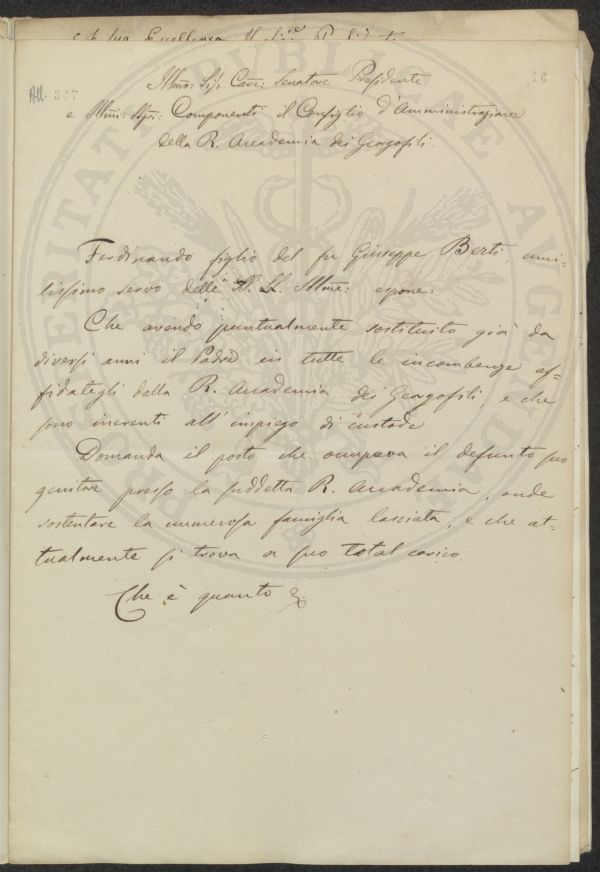 All. 307
26
Illmo: Sig. Cave: Senatore Presidente
e Illmi: Sigri: Componenti il Consiglio d'Amministrazione
della R. Accademia dei Georgofili
Ferdinando figlio del fu Giuseppe Berti, umi-
lissimo servo delle LL. LL. Illme: espone:
Che avendo puntualmente sostituito già da
diversi anni il Padre in tutte le incombenze af-
fidategli dalla R. Accademia dei Georgofili, e che
sono inerenti all'impiego di custode
Domanda il posto che occupava il defunto suo
genitore presso la suddetta R. Accademia, onde
sostentare la numerosa famiglia lasciata, e che at-
tualmente si trova a suo total carico
Che è quanto
PROSPERITATI PUBLICAE AUGENDAE